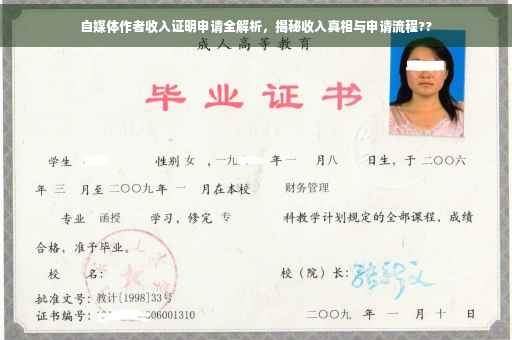 自媒体作者收入证明申请全解析，揭秘收入真相与申请流程??
成人高等教育
毕业证书
学生 性别 女 ，一九 年一 月八 日生，于二〇〇六
年 三 月至二〇〇九年 一 月在本校 财务管理
专业 函授 学习，修完 专 科教学计划规定的全部课程，成绩
合格，准予毕业。
校 名： 校（院）长：
批准文号：教计[1998]33号
证书编号： 06001310 二〇〇九 年 一 月 十 日